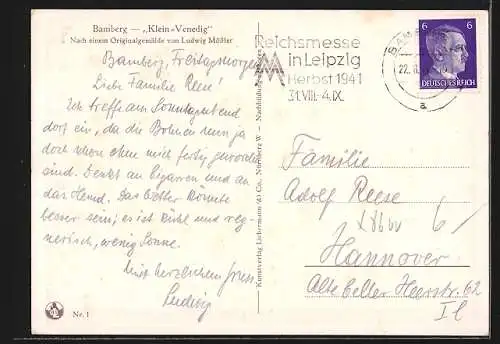 Bamberg — „Klein-Venedig"
Nach einem Originalgemälde von Ludwig Mößler
Bamberg, Freitagmorgen
Liebe Familie Reese!
Ich treffe am Sonntagabend
dort ein, da die Bohnen nun ja
doch schon ohne mich fertig geworden
sind. Denkt an Zigarren und an
das Hemd. Das Wetter könnte
besser sein; es ist kühl und reg-
nerisch, wenig Sonne.
Mit herzlichem Gruss
Ludwig
Nr. 1
Kunstverlag Liebermann & Co., Nürnberg W – Nachbildung
Reichsmesse
in Leipzig
Herbst 1941
31.VIII.-4.IX.
22.
a
6 6
DEUTSCHES REICH
Familie
Adolf Reese
Hannover
Alte Celler Heerstr. 62